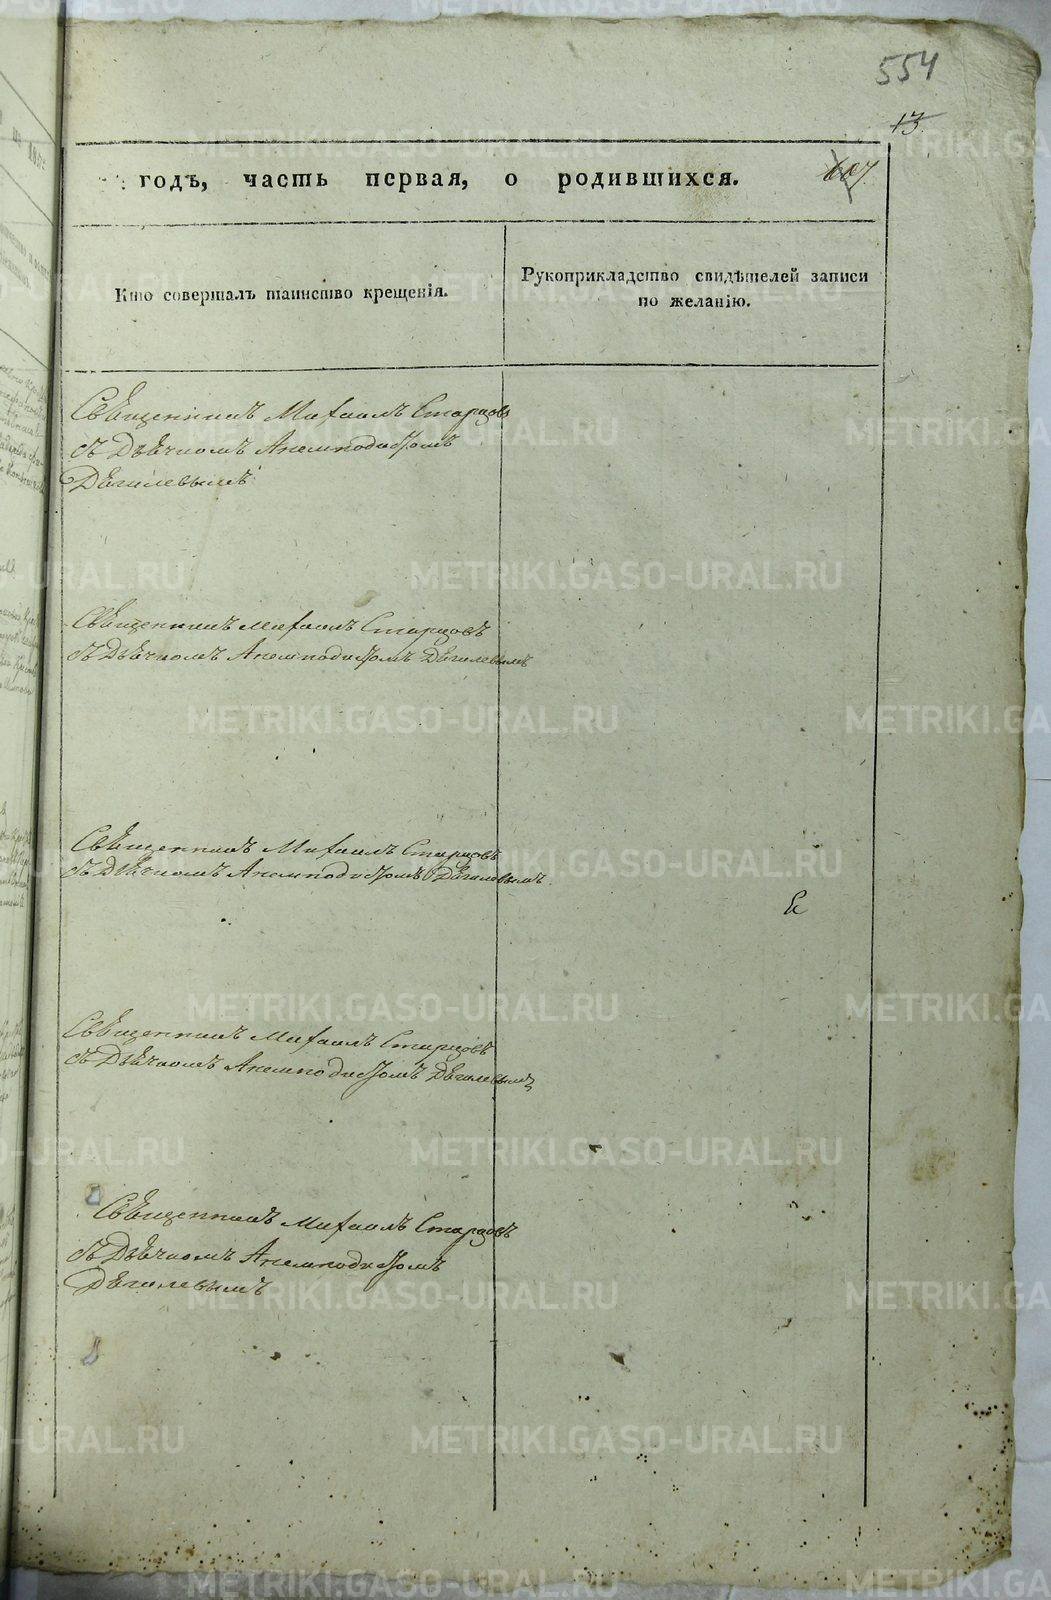 554
13.
607.
годъ, часть первая, о родившихся.
Кто совершалъ таинство крещенія.
Рукоприкладство свидѣтелей записи
по желанію.
Священникъ Михаилъ Старцовъ
съ Дьячкомъ Анемподистомъ
Дѣгилевымъ
Священникъ Михаилъ Старцовъ
съ Дьячкомъ Анемподистомъ Дѣгилевымъ
Священникъ Михаилъ Старцовъ
съ Дьячкомъ Анемподистомъ Дѣгилевымъ
Священникъ Михаилъ Старцовъ
съ Дьячкомъ Анемподистомъ Дѣгилевымъ
Священникъ Михаилъ Старцовъ
съ Дьячкомъ Анемподистомъ
Дѣгилевымъ
METRIKI.GASO-URAL.RU